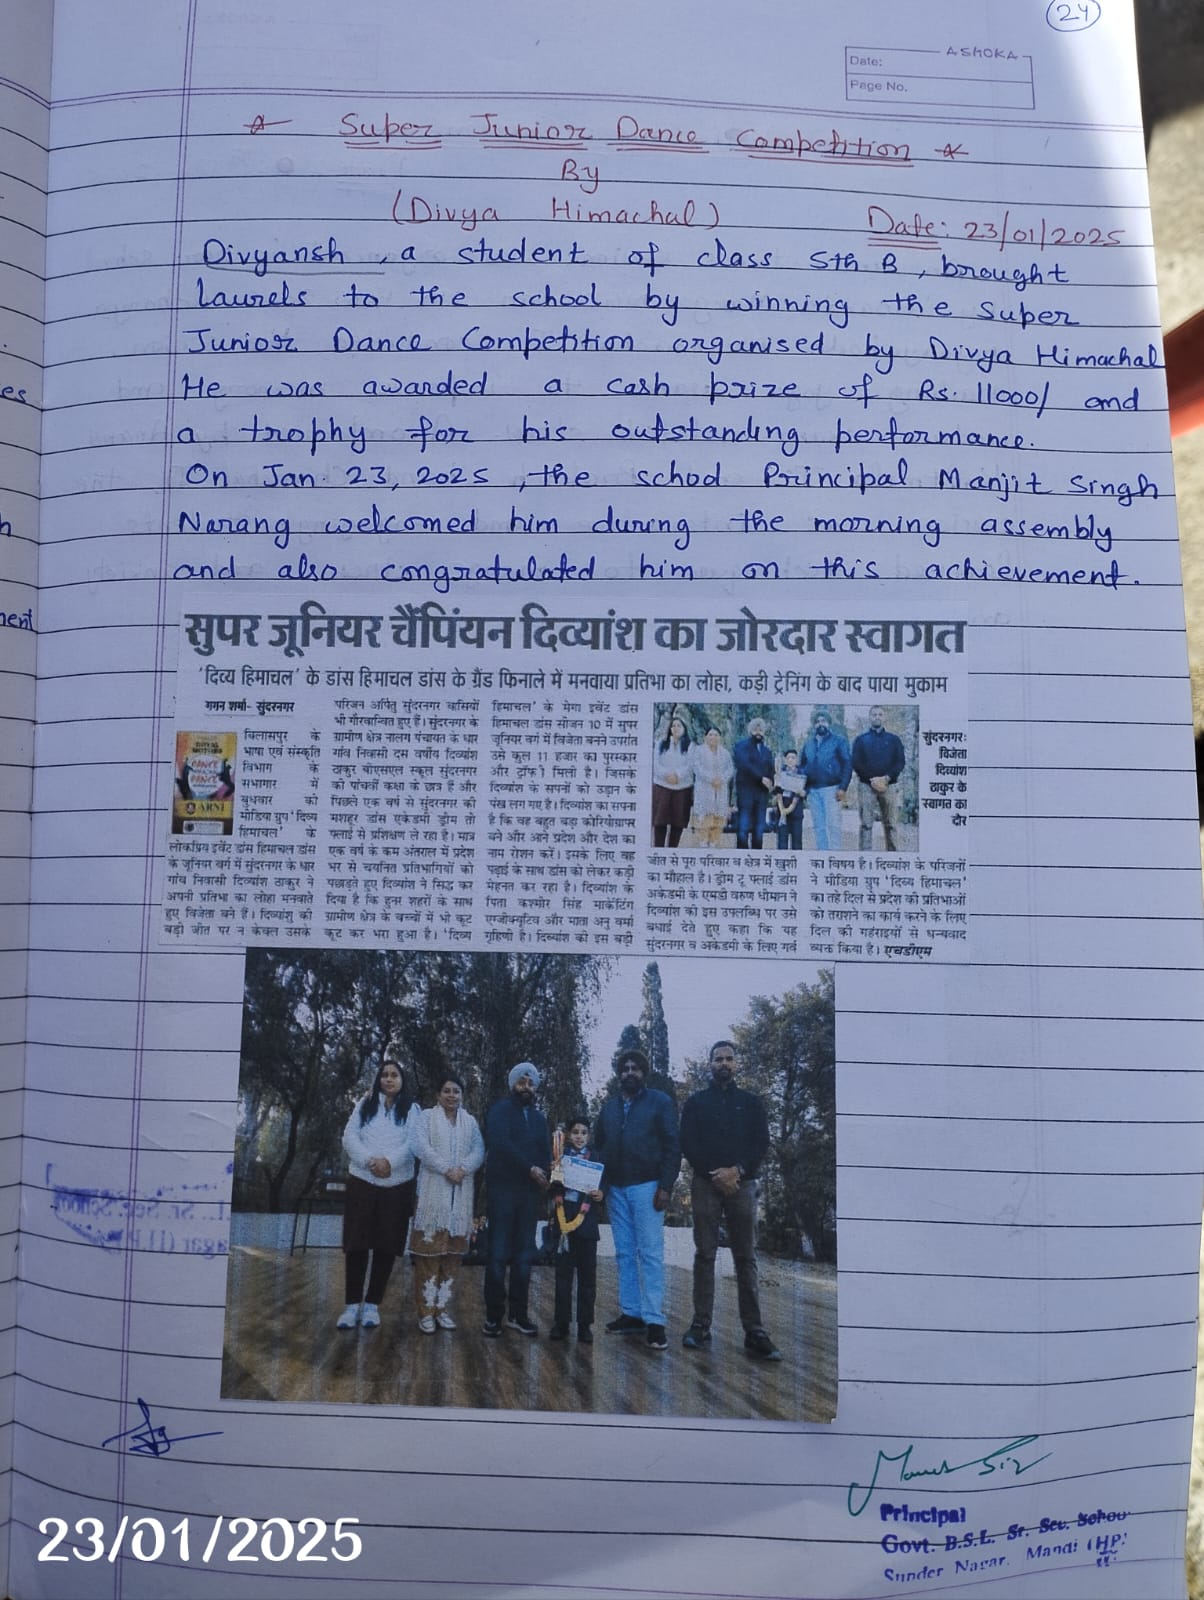 24
ASHOKA
Date:
Page No.
Super Junior Dance Competition
By
(Divya Himachal)
Date: 23/01/2025
Divyansh, a student of class 5th B, brought
laurels to the school by winning the Super
Junior Dance Competition organised by Divya Himachal
He was awarded a cash prize of Rs. 11000/ and
a trophy for his outstanding performance.
On Jan. 23, 2025, the school Principal Manjit Singh
Narang welcomed him during the morning assembly
and also congratulated him on this achievement.
सुपर जूनियर चैंपियन दिव्यांश का जोरदार स्वागत
'दिव्य हिमाचल' के डांस हिमाचल डांस के ग्रैंड फिनाले में मनवाया प्रतिभा का लोहा, कड़ी ट्रेनिंग के बाद पाया मुकाम
गगन शर्मा- सुंदरनगर
बिलासपुर के
भाषा एवं संस्कृति
विभाग के
सभागार में
बुधवार को
मीडिया ग्रुप 'दिव्य
हिमाचल' के
लोकप्रिय इवेंट डांस हिमाचल डांस
के जूनियर वर्ग में सुंदरनगर के धार
गांव निवासी दिव्यांश ठाकुर ने
अपनी प्रतिभा का लोहा मनवाते
हुए विजेता बने हैं। दिव्यांशु की
बड़ी जीत पर न केवल उसके
परिजन अपितु सुंदरनगर वासियों
भी गौरवान्वित हुए हैं। सुंदरनगर के
ग्रामीण क्षेत्र नालग पंचायत के धार
गांव निवासी दस वर्षीय दिव्यांश
ठाकुर बीएसएल स्कूल सुंदरनगर
की पांचवीं कक्षा के छात्र हैं और
पिछले एक वर्ष से सुंदरनगर की
मशहूर डांस एकेडमी ड्रीम तो
फ्लाई से प्रशिक्षण ले रहा है। मात्र
एक वर्ष के कम अंतराल में प्रदेश
भर से चयनित प्रतिभागियों को
पछाड़ते हुए दिव्यांश ने सिद्ध कर
दिया है कि हुनर शहरों के साथ
ग्रामीण क्षेत्र के बच्चों में भी कूट
कूट कर भरा हुआ है। 'दिव्य
हिमाचल' के मेगा इवेंट डांस
हिमाचल डांस सीजन 10 में सुपर
जूनियर वर्ग में विजेता बनने उपरांत
उसे कुल 11 हजार का पुरस्कार
और ट्रॉफी मिली है। जिसके
दिव्यांश के सपनों को उड़ान के
पंख लग गए है। दिव्यांश का सपना
है कि वह बहुत बड़ा कोरियोग्राफर
बने और आने प्रदेश और देश का
नाम रोशन करें। इसके लिए वह
पढ़ाई के साथ डांस को लेकर कड़ी
मेहनत कर रहा है। दिव्यांश के
पिता कश्मीर सिंह मार्केटिंग
एग्जीक्यूटिव और माता अनु वर्मा
गृहिणी है। दिव्यांश की इस बड़ी
सुंदरनगरः
विजेता
दिव्यांश
ठाकुर के
स्वागत का
दौर
जीत से पूरा परिवार व क्षेत्र में खुशी
का मौहाल है। ड्रीम टू फ्लाई डांस
अकेडमी के एमडी वरुण धीमान ने
दिव्यांश की इस उपलब्धि पर उसे
बधाई देते हुए कहा कि यह
सुंदरनगर व अकेडमी के लिए गर्व
का विषय है। दिव्यांश के परिजनों
ने मीडिया ग्रुप 'दिव्य हिमाचल'
का तहे दिल से प्रदेश की प्रतिभाओं
को तराशने का कार्य करने के लिए
दिल की गहराइयों से धन्यवाद
व्यक्त किया है। एचडीएम
Principal
Govt. B.S.L. Sr. Sec. School
Sunder Nagar, Mandi (HP)
23/01/2025